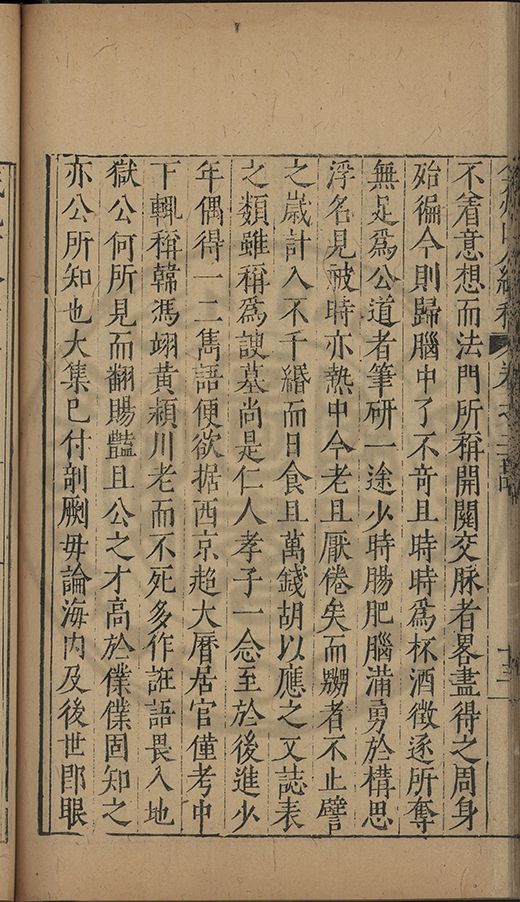 不着意想而法門所稱開關交脉者畧盡得之周身
殆徧今則歸腦中了不竒且時時爲杯酒徵逐所奪
無足爲公道者筆研一途少時腸肥腦滿勇於搆思
浮名見祓時亦熱中今老且厭倦矣而嬲者不止譬
之歳計入不千緡而日食且萬錢胡以應之又誌表
之類雖稱爲諛墓尚是仁人孝子一念至於後進少
年偶得一二雋語便欲据西京趍大曆居官僅考中
下輒稱韓馮翊黄頴川老而不死多作誑語畏入地
獄公何所見而翻賜豔且公之才高於僕僕固知之
亦公所知也大集已付剞劂毋論海内及後世卽眼